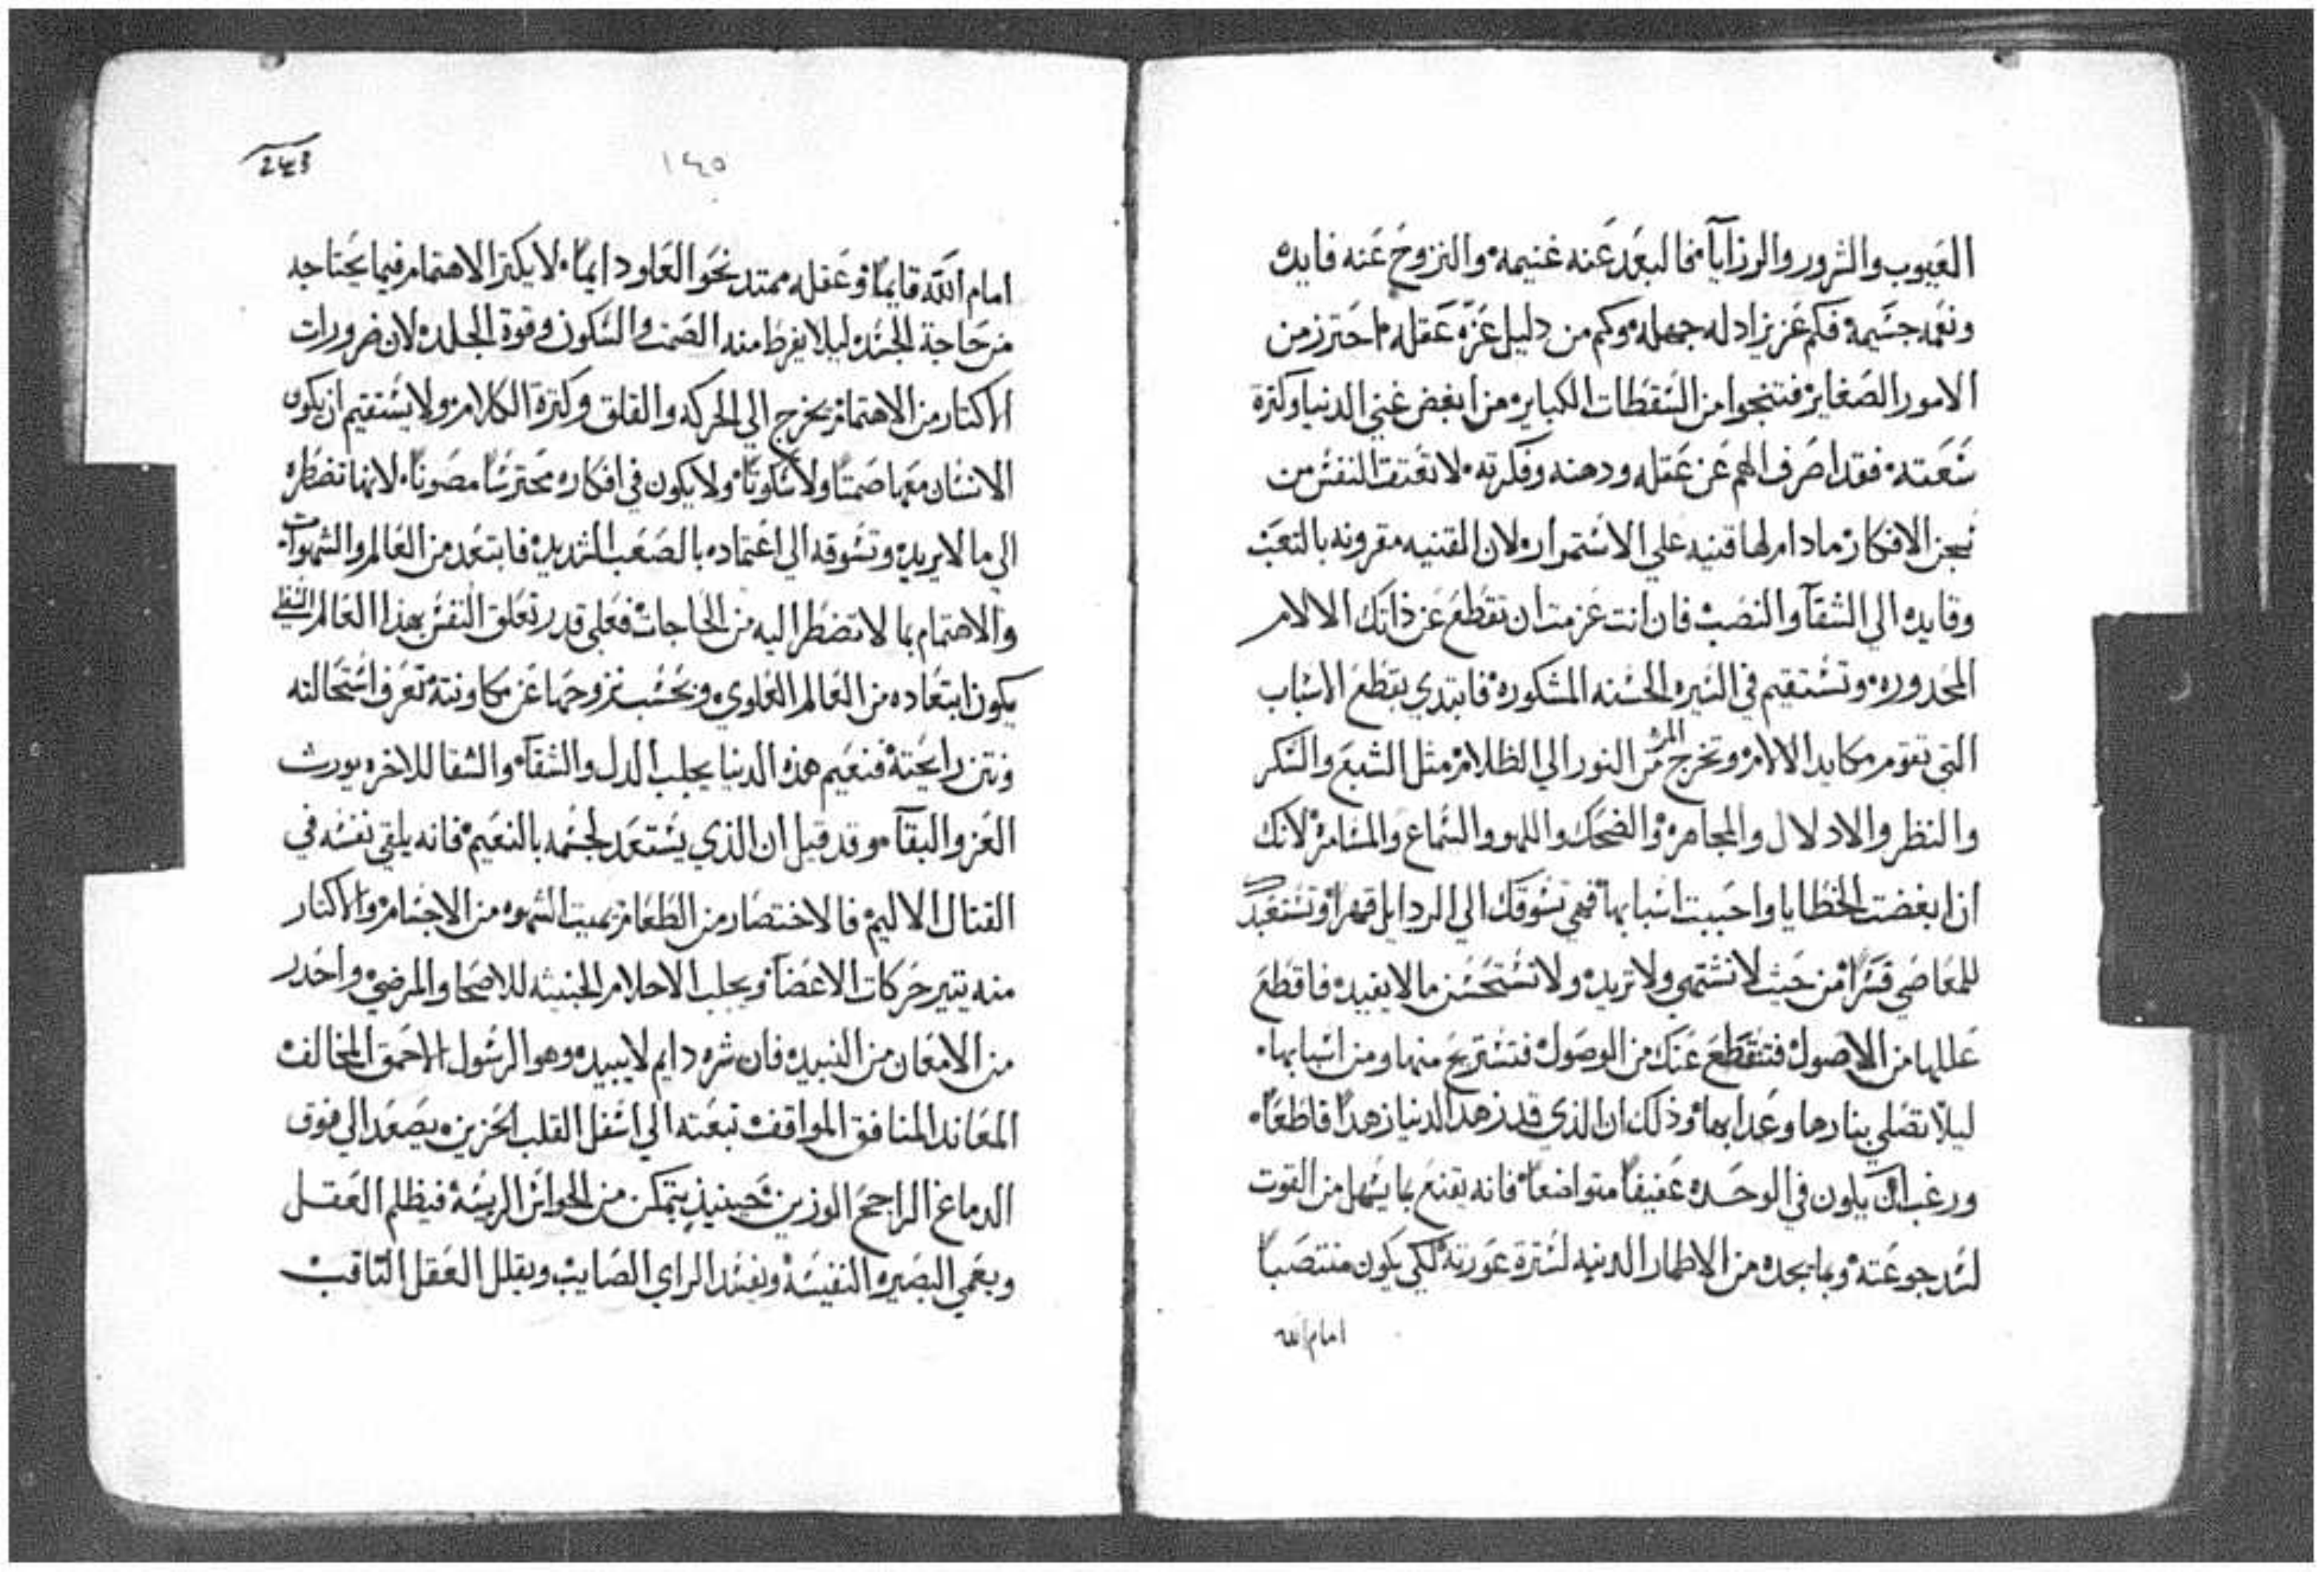 العيوب والشرور والرزايآ فالبعد عنه غنيمه والنزوح عنه فايده
ونعمه جشيمه فكم عزيز اد له جهله وكم من دليل عزه عقله احترز من
الامور الصغاير فتنجوا من السقطات الكباير من ابغض غني الدنيا وكثرة
سعته فقد اصرف الهم عن عقله ودهنه وفكرته لا تعتقت النفس من
سجن الافكار مادام لها قنيه علي الاستمرار لان القنيه مقرونه بالتعب
وقايده الي الشقآ والنصب فان انت عزمت ان تقطع عن ذاتك الالام
المحدوره وتستقيم في السيره الحسنه المشكوره فابتدي بقطع الاسباب
التي تقوم مكايد الالام وتخرج المر من النور الي الظلام مثل الشبع والسكر
والنظر والادلال والمجاهره والضحك واللهو والسماع والمسامره لانك
ان ابغضت الخطايا واحببت اسبابها فهي تسوقك الي الردايل قهرا وتستعبدك
للمعاصي قسرا من حيث لا تشتهي ولا تريد ولا تستحسن ما لا يفيد فاقطع
عللها من الاصول فتنقطع عنك من الوصول فتستريح منها ومن اسبابها
ليلا تصلي بنارها وعدابها وذلك ان الذي قد زهد الدنيا زهدا قاطعا
ورغب ان يكون في الوحده عفيفا متواضعا فانه يقنع بما يسهل من القوت
لسد جوعته وبما يجده من الاطمار الدنيه لسترة عورته لكي يكون منتصبا
امام الله
243
١٤٥
امام الله قايما وعقله ممتد نحو العلو دايما لا يكتر الاهتمام فيما يحتاجه
من حاجة الجسد ليلا يفرط منه الصمت والسكون وقوة الجلد لان ضرورات
الاكتار من الاهتمام تخرج الي الحركه والقلق وكترة الكلام ولا يستقيم ان يكون
الانسان معها صمتا ولا سكوتا ولا يكون في افكاره محترسا مصونا لانها تضطره
الي ما لا يريد وتسوقه الي اعتماده بالصعب الشديد فابتعد من العالم والشهوات
والاهتمام بما لا تضطر اليه من الحاجات فعلي قدر تعلق النفس بهذا العالم السفلي
يكون ابتعاده من العالم العلوي وبحسب نزوحها عن مكاونته تعرف استحالته
ونتن رايحته فنعيم هذه الدنيا يجلب الدل والشقآ والشقا للاخره يورث
العز والبقآ وقد قيل ان الذي يستعد لجسمه بالنعيم فانه يلقي نفسه في
القتال الاليم فالاختصار من الطعام يميت الشهوه من الاجسام والاكتار
منه يتير حركات الاعضآ ويجلب الاحلام الخبيثه للاصحا والمرضي واحدر
من الامعان من النبيد فان شره دايم لا يبيد وهو الرسول الاحمق المخالف
المعاند المنافق المواقف تبعته الي اسفل القلب الحزين يصعد الي فوق
الدماغ الراجح الوزين حينيذ يتمكن من الحواس الريسه فيظلم العقل
ويعمي البصيره النفيسه ويفسد الراي الصايب ويقلل العقل التاقب